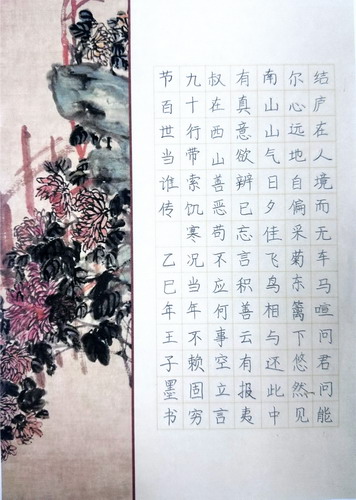 结庐在人境而无车马喧问君问能
尔心远地自偏采菊东篱下悠然见
南山山气日夕佳飞鸟相与还此中
有真意欲辨已忘言积善云有报夷
叔在西山善恶苟不应何事空立言
九十行带索饥寒况当年不赖固穷
节百世当谁传 乙巳年王子墨书